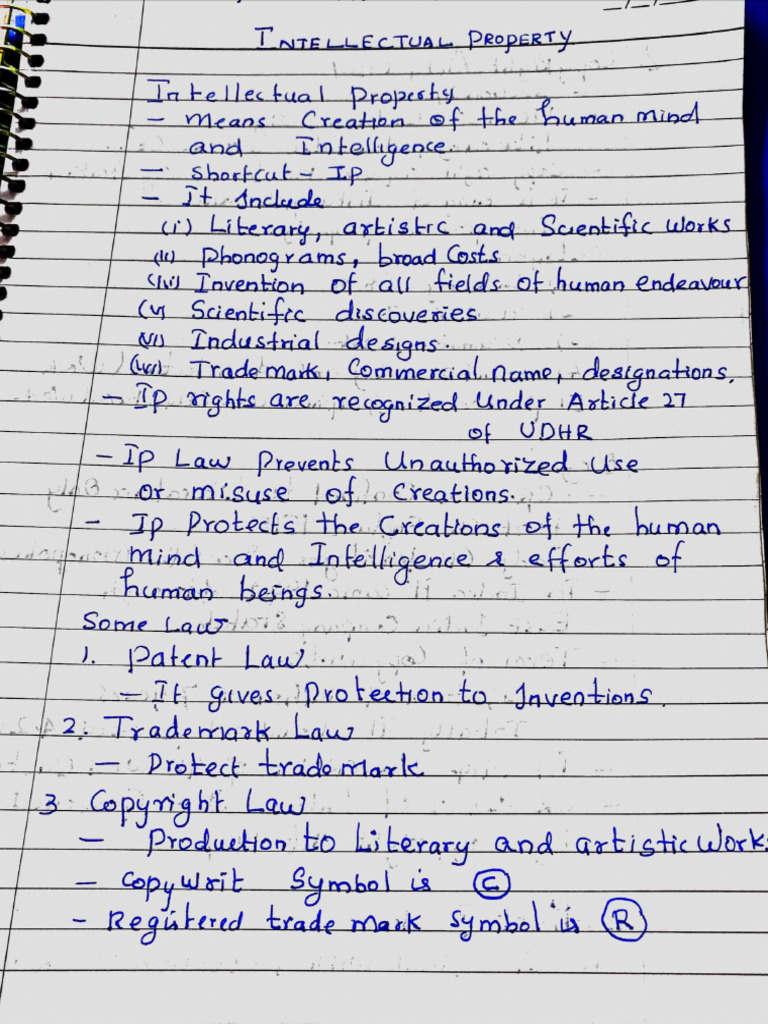 INTELLECTUAL PROPERTY
Intellectual Property
- Means Creation of the human mind
and Intelligence.
- Shortcut - IP
- It Include
(i) Literary, artistic and Scientific Works
(ii) Phonograms, broad Costs
(iii) Invention of all fields of human endeavour
(v) Scientific discoveries
(vi) Industrial designs.
(vii) Trade mark, Commercial Name, designations.
- Ip rights are recognized Under Article 27
of UDHR
- Ip Law Prevents Unauthorized Use
or misuse of Creations.
- Ip Protects the Creations of the human
mind and Intelligence & efforts of
human beings.
Some Law
1. Patent Law.
- It gives Protection to Inventions.
2. Trademark Law
- Protect trade Mark
3 Copyright Law
- Production to Literary and artistic Work
- Copywrit Symbol is ©
- Registered trade mark Symbol is ®